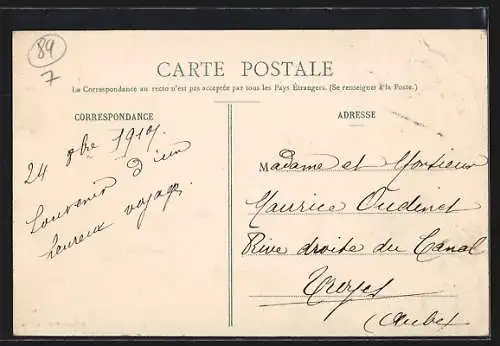 89
7
CARTE POSTALE
La Correspondance au recto n'est pas acceptée par tous les Pays Étrangers. (Se renseigner à la Poste.)
CORRESPONDANCE
ADRESSE
24 9bre
Souvenir d'un
heureux voyage.
Madame et Monsieur
Maurice Oudinet
Rive droite du Canal
Troyes
(Aube)